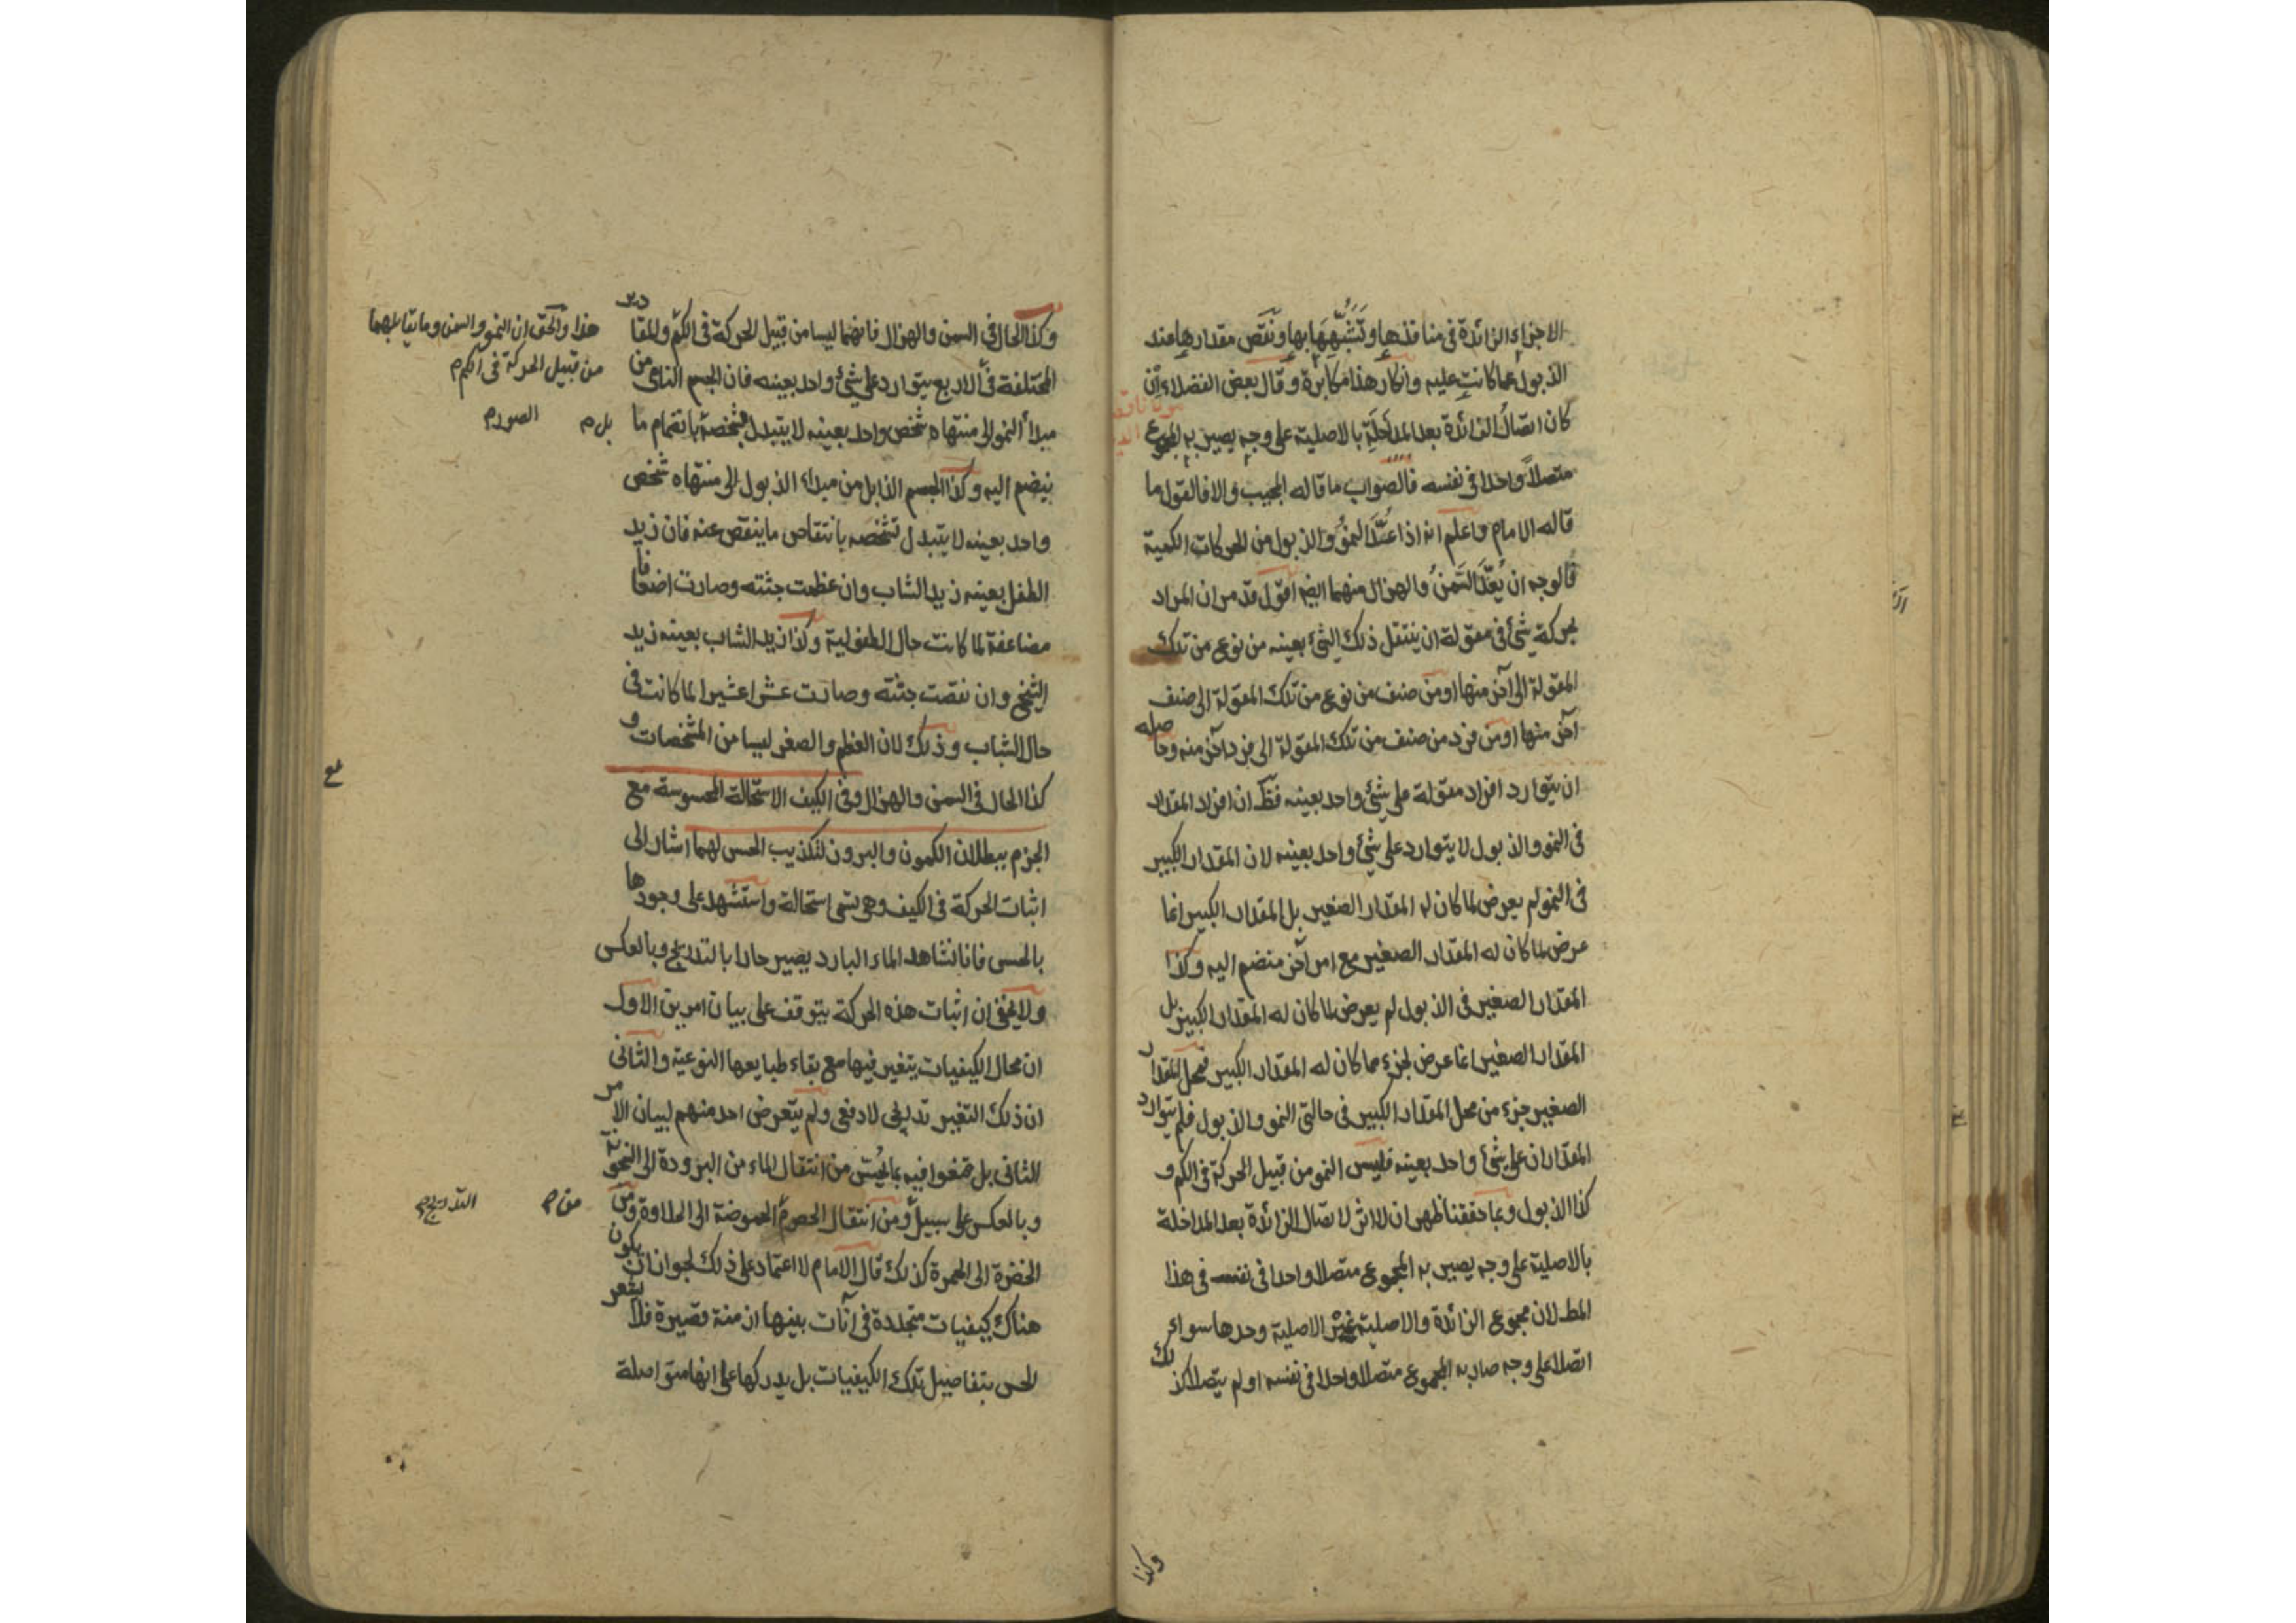 الاجزاء الزائدة فى منافذها وتَشَبُّهِهَا بها ونَقَص مقدارها عند
الذبول عما كانت عليه وانكار هذا مكابرة وقال بعض الفضلاء ان
كان اتصال الزائدة بعد المداخلة بالاصلية على وجه يصير به المجموع
متصلاً واحدا فى نفسه فالصواب ما قاله المجيب والا فالقول ما
قاله الامام واعلم انه اذا عُدَّ النموُّ والذبول من الحركات الكمية
فالوجه ان يُعَدَّ السَّمَنُ والهزال منهما ايضا اقول قد مر ان المراد
بحركة شئ فى مقولة ان ينتقل ذلك الشئ بعينه من نوع من تلك
المقولة الى آخر منها او من صنف من نوع من تلك المقولة الى صنف
آخر منها او من فرد من صنف من تلك المقولة الى فرد آخر منه وحاصله
ان يتوارد افراد مقولة على شئ واحد بعينه فظ ان افراد المقدار
فى النمو والذبول لا يتوارد على شئ واحد بعينه لان المقدار الكبير
فى النمو لم يعرض لما كان له المقدار الصغير بل المقدار الكبير انما
عرض لما كان له المقدار الصغير مع امر آخر منضم اليه وكذا
المقدار الصغير فى الذبول لم يعرض لما كان له المقدار الكبير بل
المقدار الصغير انما عرض لجزء مما كان له المقدار الكبير فمحل المقدار
الصغير جزء من محل المقدار الكبير فى حالتى النمو والذبول فلم يتوارد
المقداران على شئ واحد بعينه فليس النمو من قبيل الحركة فى الكم و
كذا الذبول وبما حققنا ظهر ان لا اثر لاتصال الزائدة بعد المداخلة
بالاصلية على وجه يصير به المجموع متصلا واحدا فى نفسه فى هذا
المط لان مجموع الزائدة والاصلية غيْر الاصلية وحدها سواء
اتصلا على وجه صار به المجموع متصلا واحدا فى نفسه او لم يتصلا كذلك
وكذا
وكذا الحال فى السمن والهزال فانهما ليسا من قبيل الحركة فى الكم والمقادير
المختلفة فى الاربع يتوارد على شئ واحد بعينه فان الجسم النامى من
مبدأ النمو الى منتهاه شخص واحد بعينه لا يتبدل تشخصه بانضمام ما
ينضم اليه وكذا الجسم الذابل من مبداء الذبول الى منتهاه شخص
واحد بعينه لا يتبدل تشخصه بانتقاص ما ينقص عنه فان زيد
الطفل بعينه زيد الشاب وان عظمت جثته وصارت اضعافا
مضاعفة لما كانت حال الطفولية وكذا زيد الشاب بعينه زيد
الشيخ وان نقصت جثته وصارت عشرا عشيرا لما كانت فى
حال الشاب وذلك لان العظم والصغر ليسا من المشخصات و
كذا الحال فى السمن والهزال وفى الكيف الاستحالة المحسوسة مع
الجزم ببطلان الكمون والبروز لتكذيب الحس لهما اشار الى
اثبات الحركة فى الكيف وهى تسمى استحالة واستشهد على وجودها
بالحس فانا نشاهد الماء البارد يصير حارا بالتدريج وبالعكس
ولا يخفى ان اثبات هذه الحركة يتوقف على بيان امرين الاول
ان محال الكيفيات يتغير فيها مع بقاء طبايعها النوعية والثانى
ان ذلك التغير تدريجى لا دفعى ولم يتعرض احد منهم لبيان الامر
الثانى بل قنعوا فيه بما يُحسّ من انتقال الماء من البرودة الى السخونة
وبالعكس على سبيل ومن انتقال الحصرم الحموضة الى الحلاوة ومن
الخضرة الى الحمرة كذلك قال الامام لا اعتماد على ذلك لجواز ان يكون
هناك كيفيات متجددة فى آنات بينها ازمنة قصيرة فلا يشعر
الحس بتفاصيل تلك الكيفيات بل يدركها على انها متواصلة
هذا والحق ان النمو والسمن وما يقابلهما
من قبيل الحركة فى الكم م
بل م
الصور م
مع
من م
التدريج م